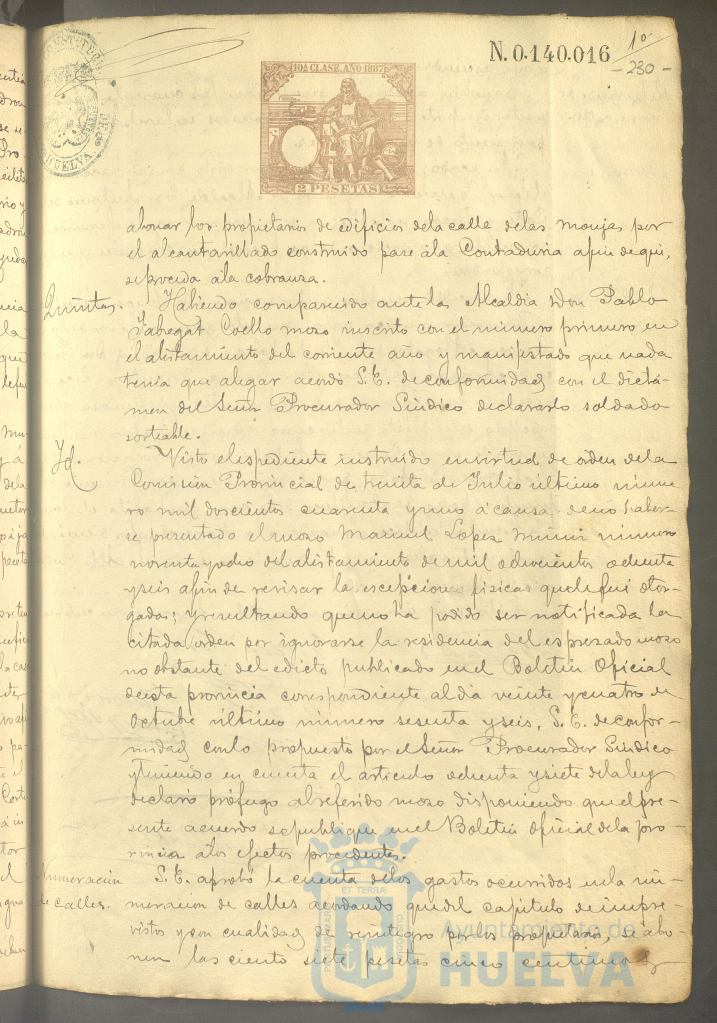 N. 0.140.016
10
- 230 -
10ª CLASE. AÑO 1887
2 PESETAS
HUELVA
abonar los propietarios de edificios dela calle delas monjas por
el alcantarillado construido pase ála Contaduria afin de qui,
se proceda ála cobranza.
Quintas. Habiendo comparecido ante la Alcaldia Don Pablo
Fabregat Coello mozo inscrito con el número primero en
el alistamiento del corriente año y manifestado que nada
tenia que alegar acordó S.E. de conformidad con el dictá-
men del Señor Procurador Sindico declararlo soldado
sorteable.
Id. Visto el espediente instruido en virtud de orden dela
Comisión Provincial de treinta de Julio último núme
ro mil doscientos cuarenta y uno á causa de no haber-
se presentado el mozo Manuel Lopez número
noventa y ocho del alistamiento de mil ochocientos ochenta
y seis afin de revisar la escepciones fisicas que le fui otor-
gadas; y resultando que no ha podido ser notificada la
citada orden por ignorarse la residencia del espresado mozo
no obstante del edicto publicado en el Boletin Oficial
de esta provincia correspondiente al dia veinte y cuatro de
Octubre último número sesenta y seis, S.E. de confor-
midad con lo propuesto por el Señor Procurador Sindico
y teniendo en cuenta el articulo ochenta y siete dela ley
declaró prófugo al referido mozo disponiendo que el pre-
sente acuerdo se publique en el Boletin oficial dela pro-
vincia á los efectos procedentes.
Numeracion de calles. S.E. aprobó la cuenta delos gastos ocurridos en la nú-
meracion de calles acordando que del capitulo de impre-
vistos y con cualidad de reintegro por los propietarios, se abo-
nen las ciento siete pesetas cinco centimos
Ayuntamiento de
HUELVA